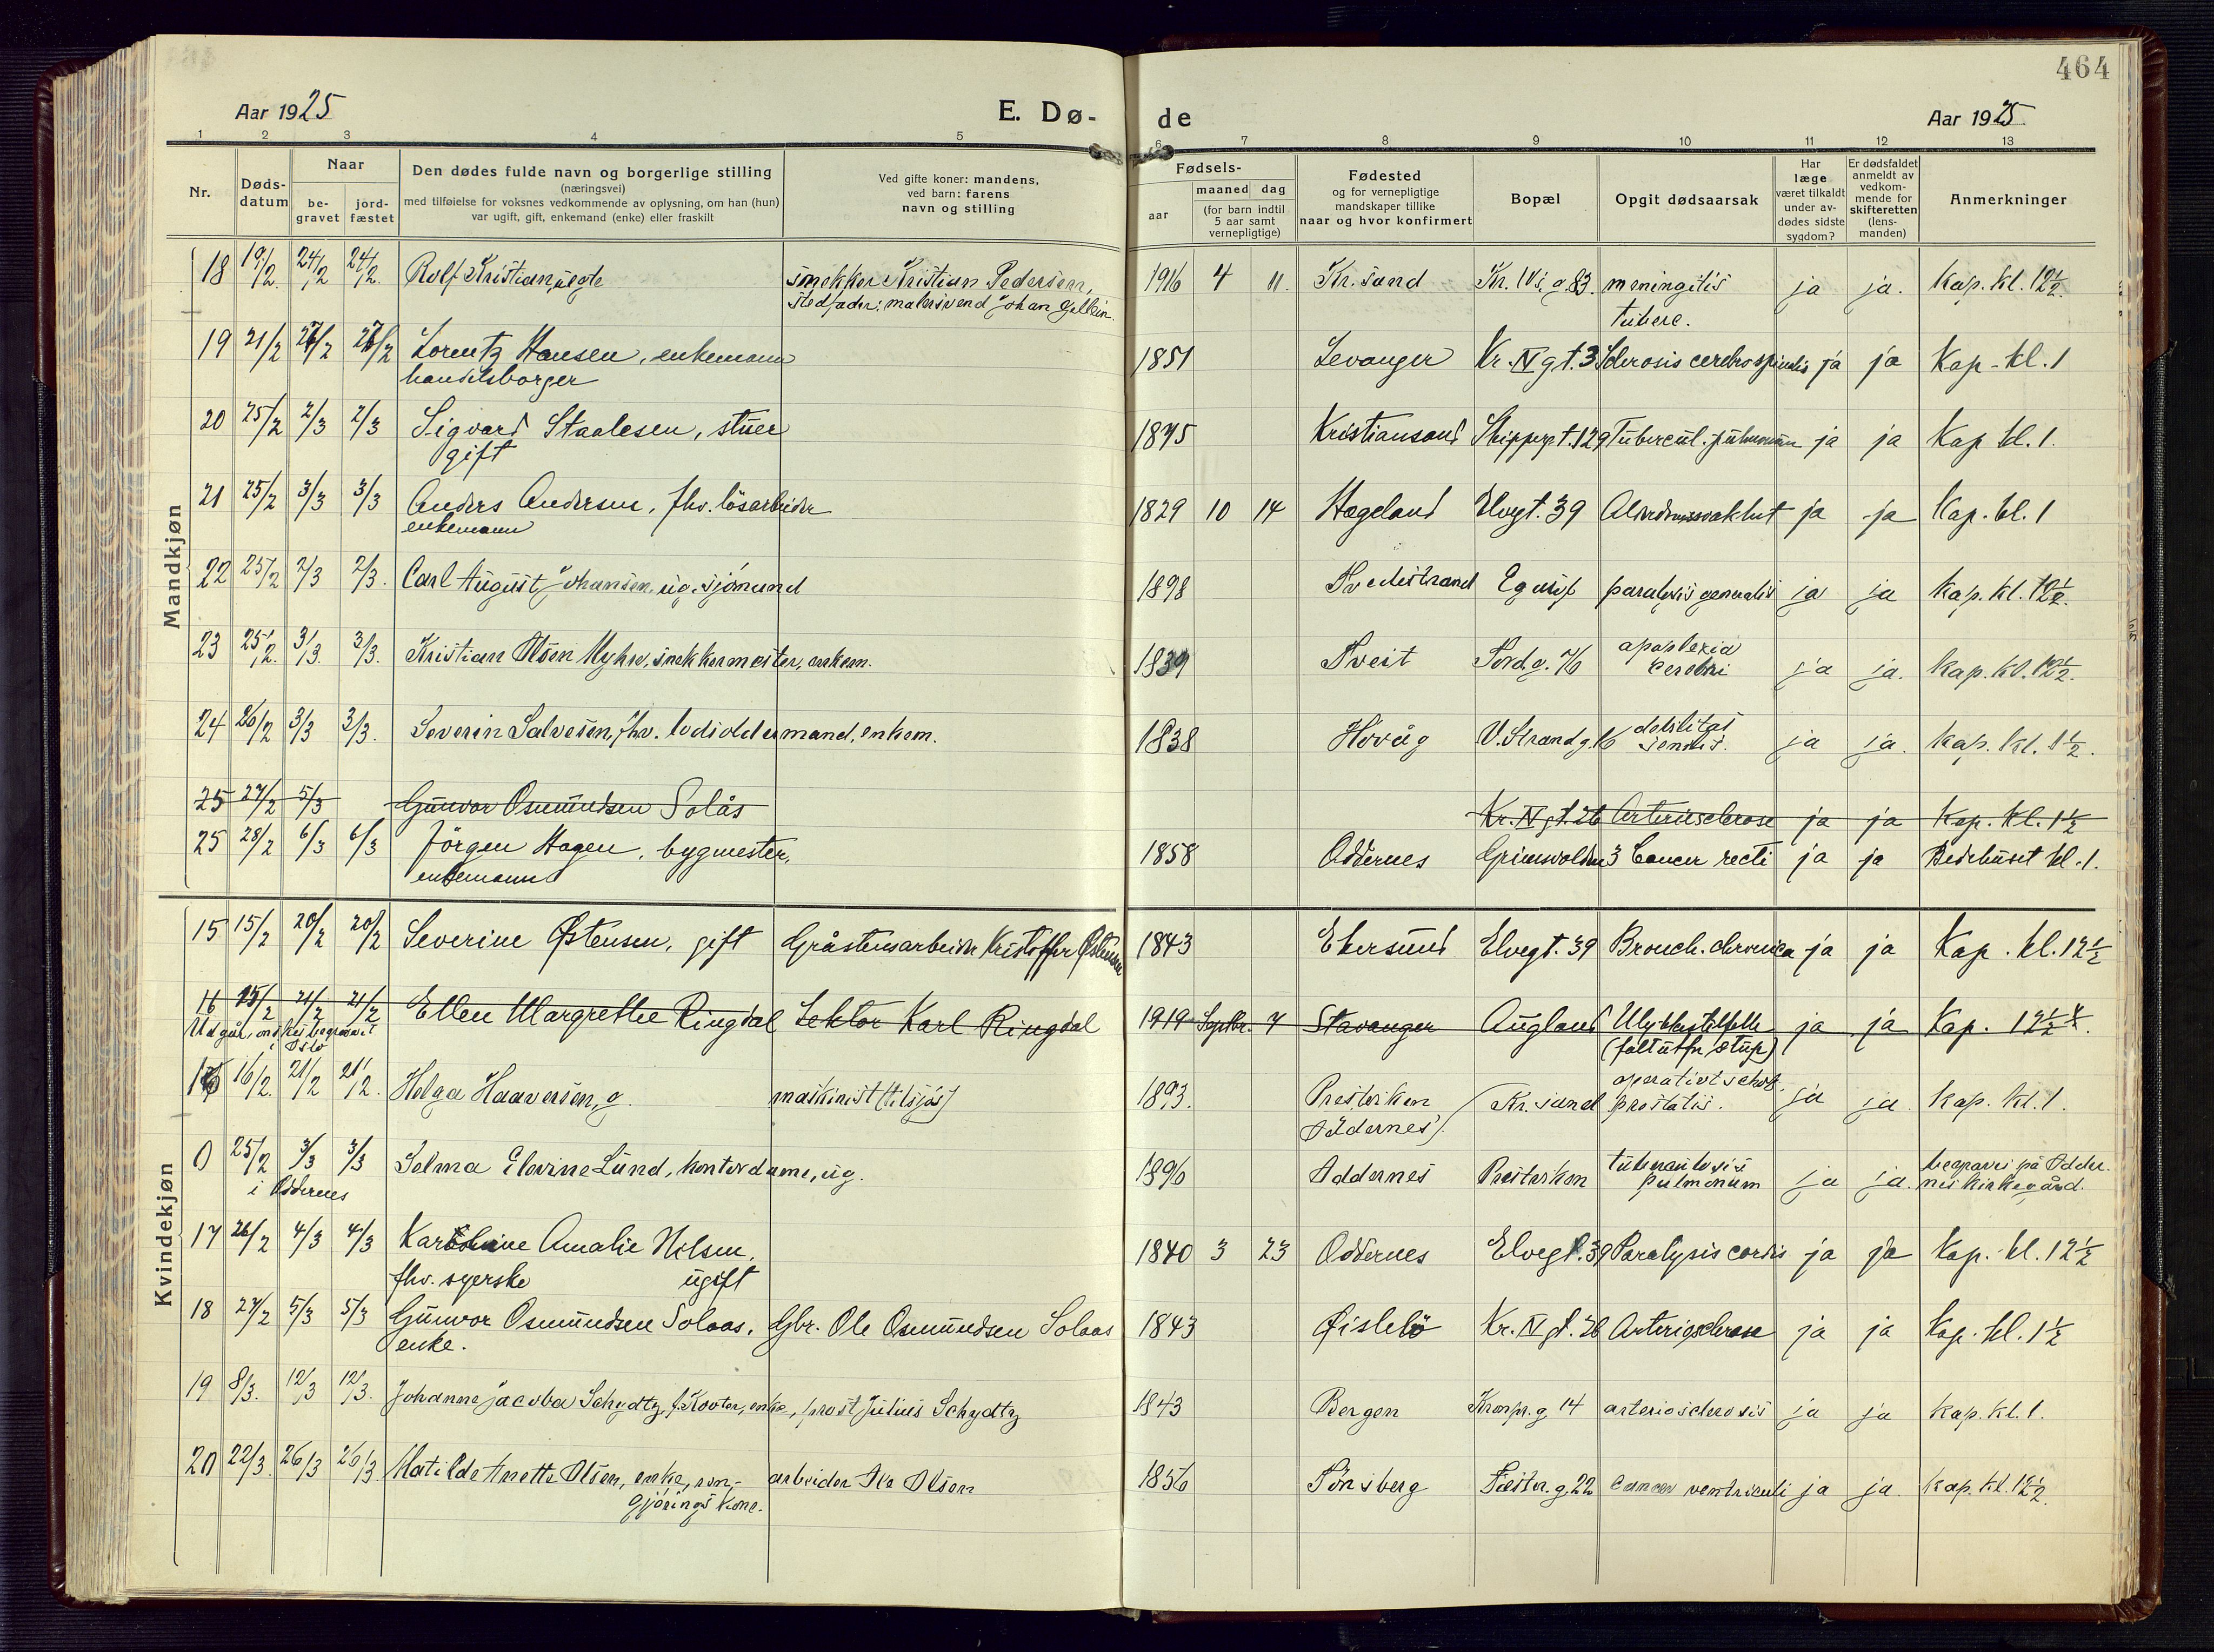 464
Aar 1925 E. Dø- de Aar 1925
1 2 3 4 5 6 7 8 9 10 11 12 13
Nr.
Døds-
datum
Naar
be-
gravet
jord-
fæstet
Den dødes fulde navn og borgerlige stilling
(næringsvei)
med tilføielse for voksnes vedkommende av oplysning, om han (hun)
var ugift, gift, enkemand (enke) eller fraskilt
Ved gifte koner: mandens,
ved barn: farens
navn og stilling
Fødsels-
aar
maaned dag
(for barn indtil
5 aar samt
vernepligtige)
Fødested
og for vernepligtige
mandskaper tillike
naar og hvor konfirmert
Bopæl
Opgit dødsaarsak
Har
læge
været tilkaldt
under av-
dødes sidste
sygdom?
Er dødsfaldet
anmeldt av
vedkom-
mende for
skifteretten
(lens-
manden)
Anmerkninger
Mandkjøn
18 19/2. 24/2 24/2. Rolf Kristian, ægte snekker Kristian Pedersen, 1916 4 11. Kr.sand Kr. IVs g. 83. meningitis ja ja. Kap. kl. 12½.
stedfader: malersvend Johan Gellein. tuberc.
19 21/2 27/2 27/2 Lorentz Hansen, enkemann 1851 Levanger Kr. IV gt. 3 Sclerosis cerebrospinalis ja ja Kap. kl. 1
handelsborger
20 25/2 2/3 2/3 Sigvard Staalesen, stuer 1875 Kristiansand Skippergt. 129 Tubercul. pulmonum ja ja Kap kl. 1.
gift
21 25/2 3/3 3/3 Anders Andersen, fhv. løsarbeider 1829 10 14 Hægeland Elvegt. 39 Alderdomssvakhet ja ja Kap. kl. 1
enkemann
22 25/2 2/3 2/3. Carl August Johansen, ug. sjømand 1898 Tvedestrand Eg asyl paralysis generalis ja ja Kap. kl. 12½.
23 25/2. 3/3. 3/3. Kristian Olsen Myhre, snekkermester, enkem. 1839 Tveit Tord.g. 76 apoplexia ja ja. Kap. kl. 12½.
cerebri
24 26/2 3/3 3/3. Severin Salvesen, fhv. lodsoldermand, enkem. 1838 Høvåg V. Strandg. 16 debilitas ja ja. Kap. kl. 1½.
senilis.
25 27/2 5/3 Gunvor Osmundsen Solås Kr. IV gt. 26 Arteriesclerose ja ja Kap. kl. 1½
25 28/2 6/3 6/3 Jörgen Hagen, bygmester, 1858 Oddernes Grimsvolden 3 Cancer recti ja ja Bedehuset kl. 1.
enkemann
Kvindekjøn
15 15/2 20/2 20/2 Severine Østensen, gift Gråstensarbeider Kristoffer Østensen 1843 Ekersund Elvegt. 39 Bronch. chronica ja ja Kap. kl. 12½
16 15/2 21/2 21/2 Ellen Margrethe Ringdal Lektor Karl Ringdal 1919 Septbr. 7 Stavanger Augland Ulykkestilfelle ja ja Kap. 12½
Udgår, begravet (falt utfor stup)
i Oslo
16 16/2. 21/2 21/2. Helga Haaversen, g. maskinist (tilsjøs) 1893. Prestviken Kr.sand ja ja. Kap. kl. 1.
Oddernes).
0 25/2 3/3 3/3 Selma Elevine Lund, kontordame, ug. 1896 Oddernes Prestviken tuberculosis ja ja. begravet på Odder-
i Oddernes pulmonum nes kirkegård.
17 26/2 4/3 4/3 Amalie Nilsen, 1840 3 23 Oddernes Elvegt. 39 Paralysis cordis ja ja Kap. kl. 12½
fhv. syerske ugift
18 27/2 5/3 5/3 Gunvor Osmundsen Solaas, Gbr. Ole Osmundsen Solaas 1843 Øislebö Kr. IV gt. 26 Arteriosclerose ja ja Kap. kl. 1½
enke.
19 8/3. 12/3 12/3. Johanne Jacoba Schydtz, f. Kooter, enke, prost Julius Schydtz 1843 Bergen Kronpr. g. 14 arteriosclerosis ja ja Kap. kl. 1.
20 22/3. 26/3 26/3 Matilde Anette Olsen, enke, ren- arbeider Ole Olsen 1856 Tønsberg Fæstn. g. 22 cancer ventriculi ja ja. Kap. kl. 12½.
gjøringskone.